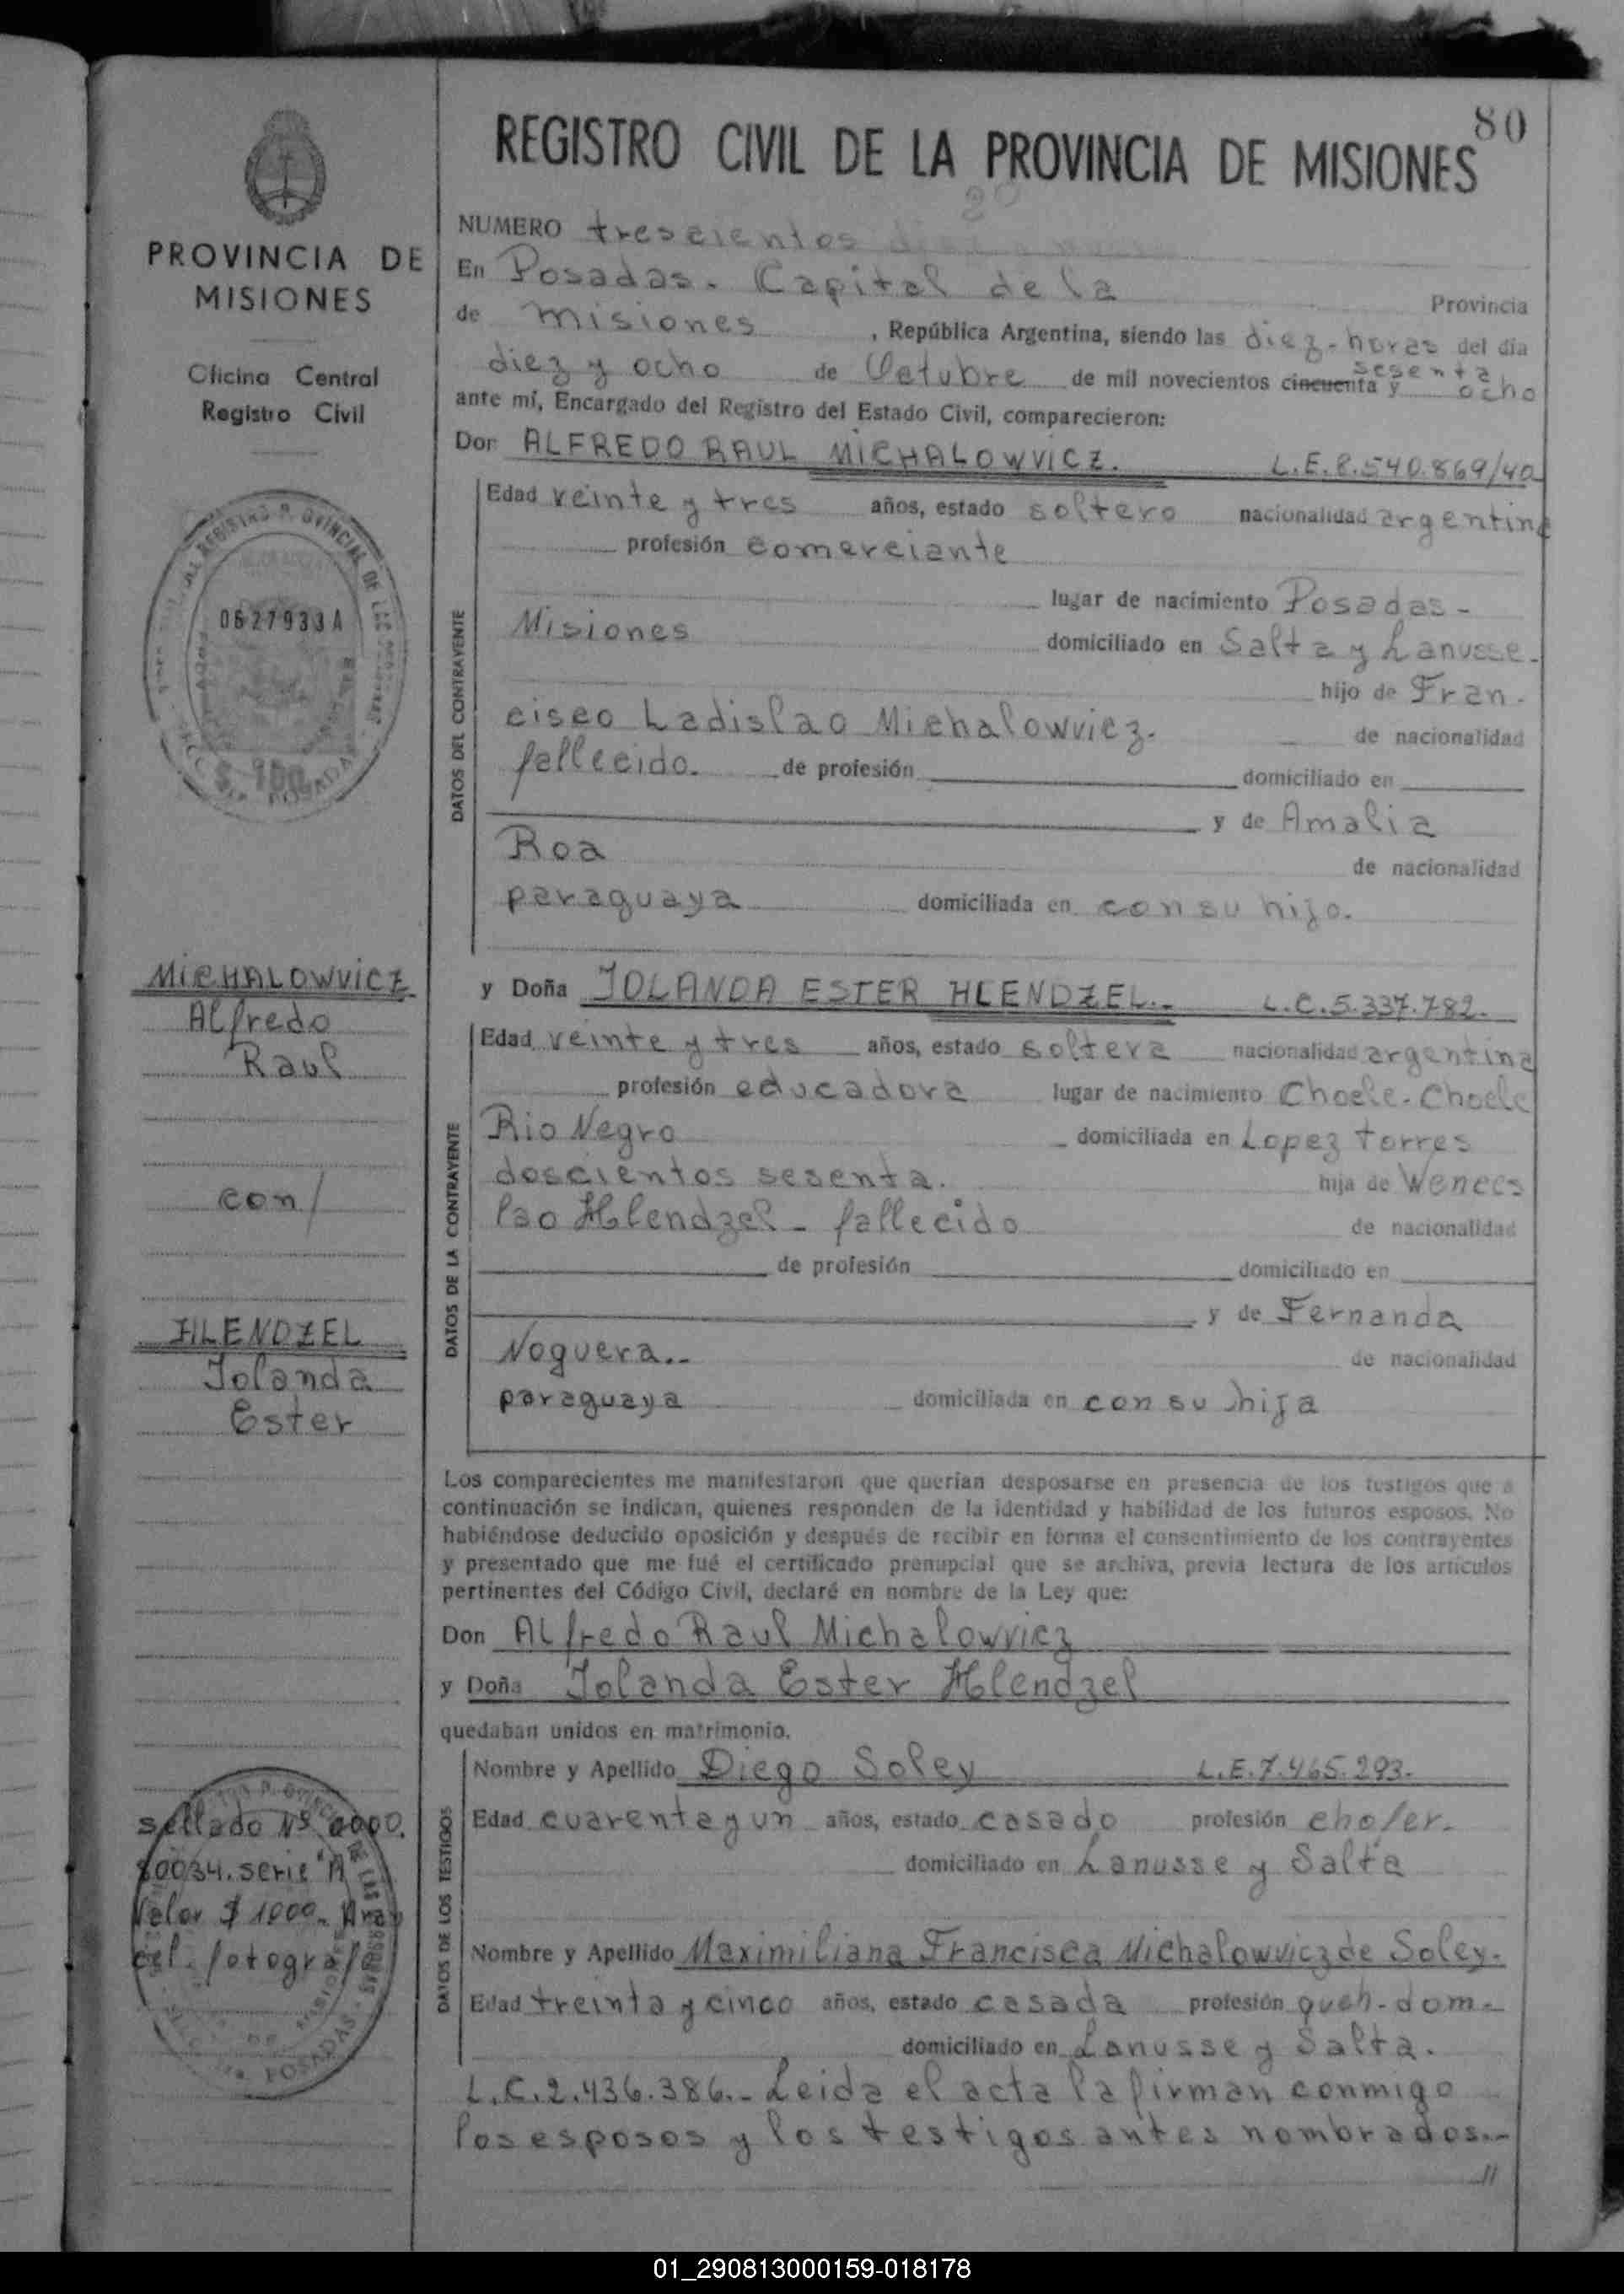 80
REGISTRO CIVIL DE LA PROVINCIA DE MISIONES
20
NUMERO trescientos
En Posadas. Capital de la Provincia
de Misiones, República Argentina, siendo las diez-horas del día
diez y ocho de Octubre de mil novecientos cincuenta y sesenta ocho
ante mí, Encargado del Registro del Estado Civil, comparecieron:
Don ALFREDO RAUL MICHALOWVICZ. L.E.8.540.869/40
DATOS DEL CONTRAYENTE
Edad veinte y tres años, estado soltero nacionalidad argentina
profesión comerciante
lugar de nacimiento Posadas-
Misiones domiciliado en Salta y Lanusse.
hijo de Fran-
cisco Ladislao Michalowvicz. de nacionalidad
fallecido. de profesión domiciliado en
y de Amalia
Roa de nacionalidad
paraguaya domiciliada en con su hijo.
y Doña IOLANDA ESTER HLENDZEL.- L.C.5.337.782.
DATOS DE LA CONTRAYENTE
Edad veinte y tres años, estado soltera nacionalidad argentina
profesión educadora lugar de nacimiento Choele-Choele
Rio Negro domiciliada en Lopez Torres
doscientos sesenta. hija de Wences
lao Hlendzel - fallecido de nacionalidad
de profesión domiciliado en
y de Fernanda
Noguera.- de nacionalidad
paraguaya domiciliada en con su hija
Los comparecientes me manifestaron que querían desposarse en presencia de los testigos que a
continuación se indican, quienes responden de la identidad y habilidad de los futuros esposos. No
habiéndose deducido oposición y después de recibir en forma el consentimiento de los contrayentes
y presentado que me fué el certificado prenupcial que se archiva, previa lectura de los artículos
pertinentes del Código Civil, declaré en nombre de la Ley que:
Don Alfredo Raul Michalowvicz
y Doña Iolanda Ester Hlendzel
quedaban unidos en matrimonio.
DATOS DE LOS TESTIGOS
Nombre y Apellido Diego Soley L.E.7.465.293.
Edad cuarenta y un años, estado casado profesión chofer.
domiciliado en Lanusse y Salta
Nombre y Apellido Maximiliana Francisca Michalowvicz de Soley.
Edad treinta y cinco años, estado casada profesión queh-dom.-
domiciliado en Lanusse y Salta.
L.C.2.436.386.- Leida el acta la firman conmigo
los esposos y los testigos antes nombrados.-
//
PROVINCIA DE
MISIONES
Oficina Central
Registro Civil
0627933A
$ 100
MICHALOWVICZ
Alfredo
Raul
con/
HLENDZEL
Iolanda
Ester
sellado Nº 0000.
80034. serie "A
Valor $ 1000.
01_290813000159-018178